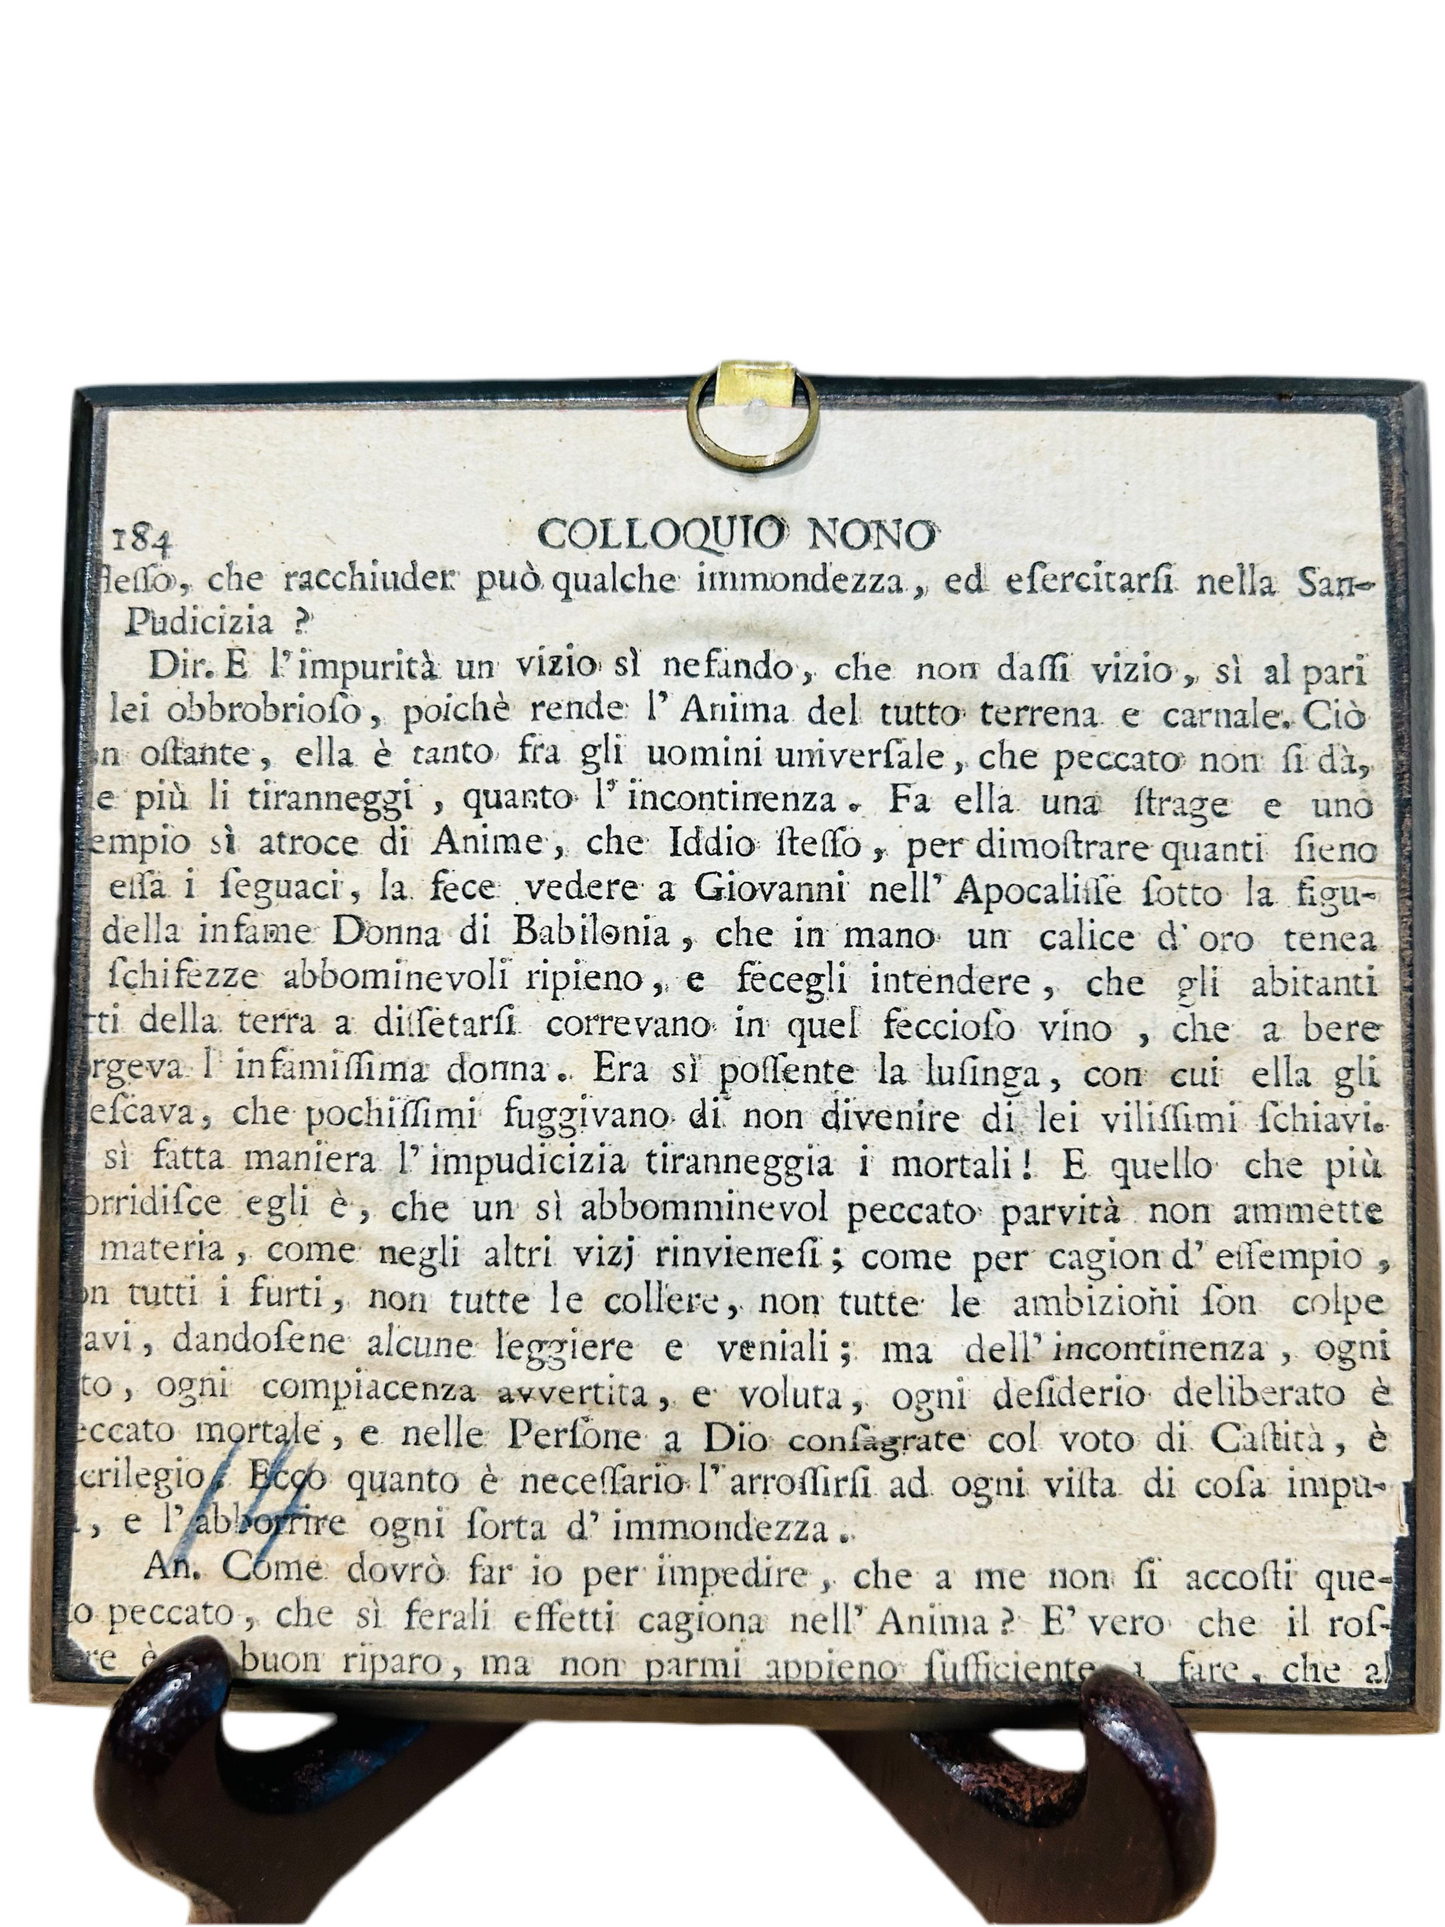 184 COLLOQUIO NONO
ſteſſo, che racchiuder può qualche immondezza, ed eſercitarſi nella San-
Pudicizia ?
Dir. E l'impurità un vizio sì nefando, che non daſſi vizio, sì al pari
lei obbrobrioſo, poichè rende l'Anima del tutto terrena e carnale. Ciò
n oſtante, ella è tanto fra gli uomini univerſale, che peccato non ſi dà,
e più li tiranneggi, quanto l'incontinenza. Fa ella una ſtrage e uno
empio sì atroce di Anime, che Iddio ſteſſo, per dimoſtrare quanti ſieno
eſſa i ſeguaci, la fece vedere a Giovanni nell'Apocaliſſe ſotto la figu-
della infame Donna di Babilonia, che in mano un calice d'oro tenea
ſchifezze abbominevoli ripieno, e fecegli intendere, che gli abitanti
tti della terra a diſſetarſi correvano in quel feccioſo vino, che a bere
rgeva l'infamiſſima donna. Era sì poſſente la luſinga, con cui ella gli
eſcava, che pochiſſimi fuggivano di non divenire di lei viliſſimi ſchiavi.
sì fatta maniera l'impudicizia tiranneggia i mortali! E quello che più
orridiſce egli è, che un sì abbomminevol peccato parvità non ammette
materia, come negli altri vizj rinvieneſi; come per cagion d'eſſempio,
on tutti i furti, non tutte le collere, non tutte le ambizioni ſon colpe
avi, dandoſene alcune leggiere e veniali; ma dell'incontinenza, ogni
to, ogni compiacenza avvertita, e voluta, ogni deſiderio deliberato è
eccato mortale, e nelle Perſone a Dio conſagrate col voto di Caſtità, è
crilegio. Ecco quanto è neceſſario l'arroſſirſi ad ogni viſta di coſa impu-
, e l'abborrire ogni ſorta d'immondezza.
14
An. Come dovrò far io per impedire, che a me non ſi accoſti que-
o peccato, che sì ferali effetti cagiona nell'Anima? E' vero che il roſ-
re è buon riparo, ma non parmi appieno ſufficiente a fare, che al